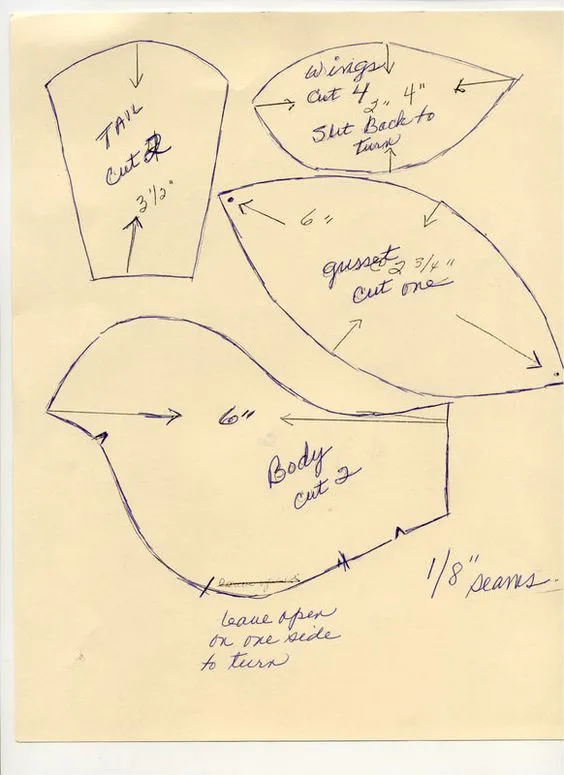 TAIL
Cut 2
3 1/2"
Wings
Cut 4
2" 4"
Slit Back to
turn
6"
gusset 2 3/4"
Cut one
6"
Body
Cut 2
1/8" seams.
leave open
on one side
to turn